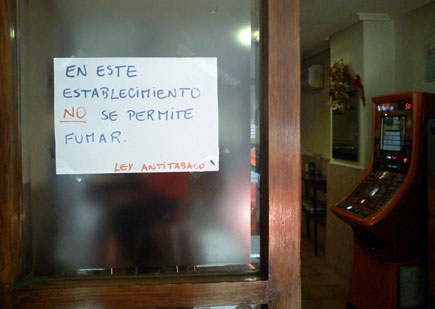 EN ESTE
ESTABLECIMIENTO
NO SE PERMITE
FUMAR.
LEY ANTITABACO